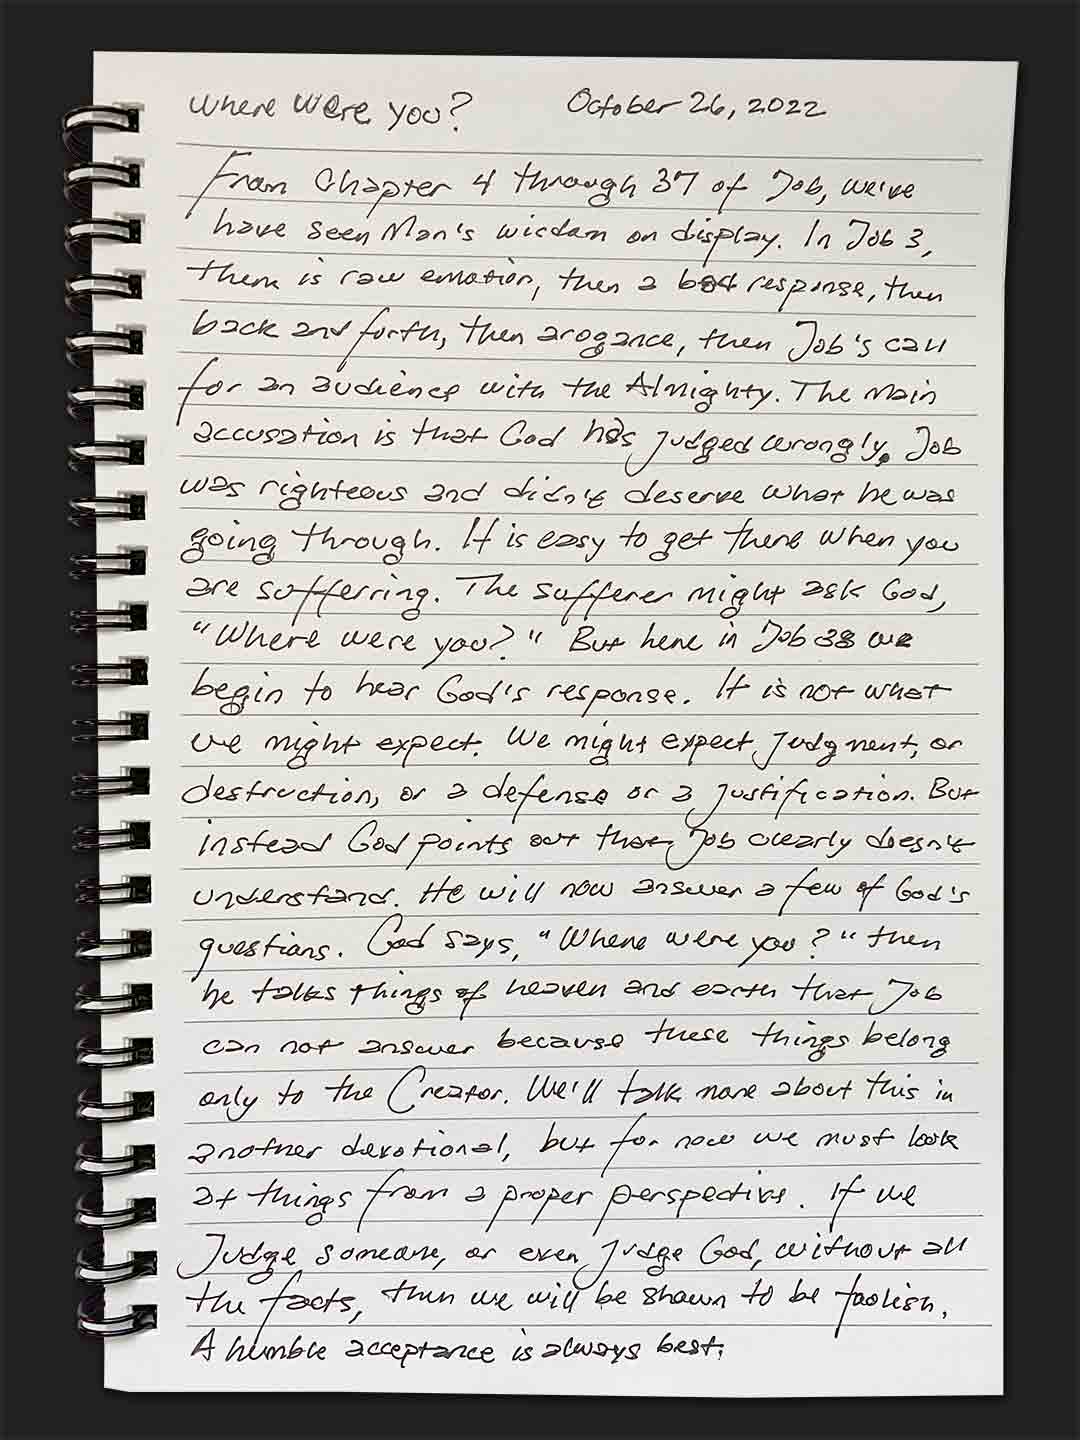 Where were you? October 26, 2022
From Chapter 4 through 37 of Job, we've
have seen Man's wisdom on display. In Job 3,
there is raw emotion, then a bad response, then
back and forth, then arogance, then Job's call
for an audience with the Almighty. The main
accusation is that God has judged wrongly. Job
was righteous and didn't deserve what he was
going through. It is easy to get there when you
are suffering. The sufferer might ask God,
"Where were you?" But here in Job 38 we
begin to hear God's response. It is not what
we might expect. We might expect judgment, or
destruction, or a defense or a justification. But
instead God points out that Job clearly doesn't
understand. He will now answer a few of God's
questions. God says, "Where were you?" then
he talks things of heaven and earth that Job
can not answer because these things belong
only to the Creator. We'll talk more about this in
another devotional, but for now we must look
at things from a proper perspective. If we
Judge someone, or even judge God, without all
the facts, then we will be shown to be foolish.
A humble acceptance is always best.